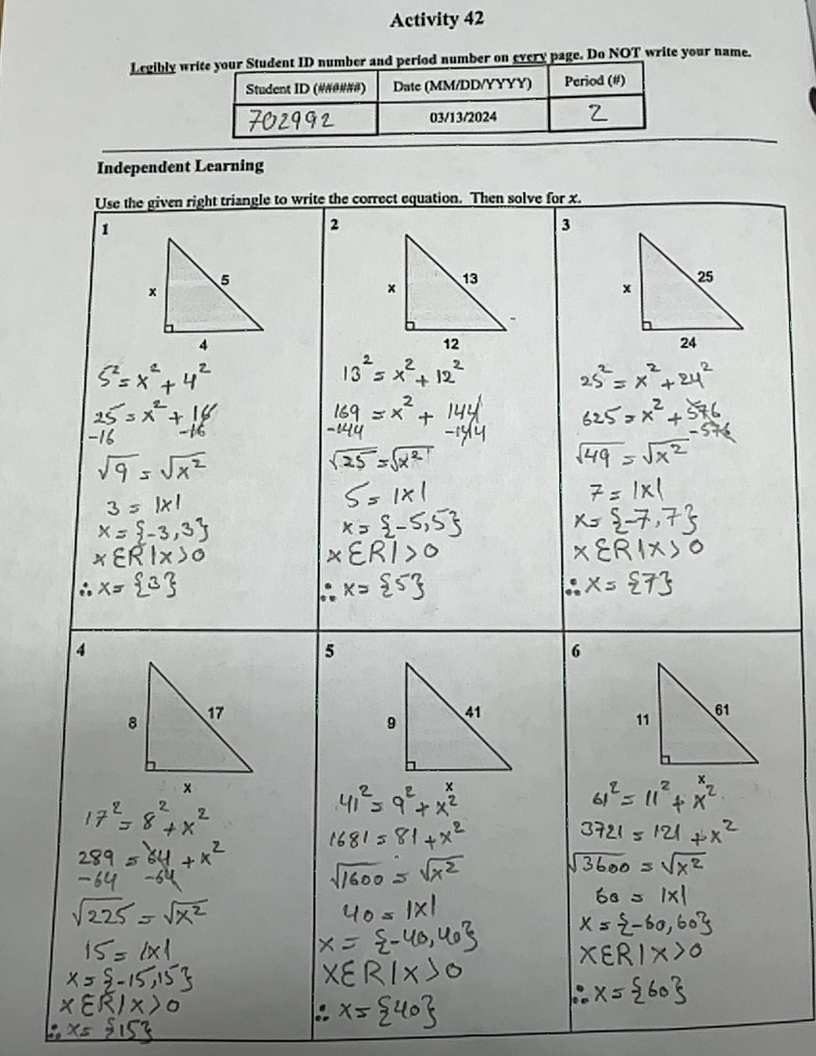 Activity 42
Legibly write your Student ID number and period number on every page. Do NOT write your name.
Student ID (######) Date (MM/DD/YYYY) Period (#)
702992 03/13/2024 2
Independent Learning
Use the given right triangle to write the correct equation. Then solve for x.
1
x 5
4
5² = x² + 4²
25 = x² + 16
-16 -16
√9 = √x²
3 = |x|
x = {-3,3}
xƐR|x>0
∴ x = {3}
2
x 13
12
13² = x² + 12²
169 = x² + 144
-144 -144
√25 = √x²
5 = |x|
x = {-5,5}
xƐR|>0
∴ x = {5}
3
x 25
24
25² = x² + 24²
625 = x² + 576
-576
√49 = √x²
7 = |x|
x = {-7,7}
xƐR|x>0
∴ x = {7}
4
8 17
x
17² = 8² + x²
289 = 64 + x²
-64 -64
√225 = √x²
15 = |x|
x = {-15,15}
xƐR|x>0
∴ x = {15}
5
9 41
x
41² = 9² + x²
1681 = 81 + x²
√1600 = √x²
40 = |x|
x = {-40,40}
xƐR|x>0
∴ x = {40}
6
11 61
x
61² = 11² + x²
3721 = 121 + x²
√3600 = √x²
60 = |x|
x = {-60,60}
xƐR|x>0
∴ x = {60}